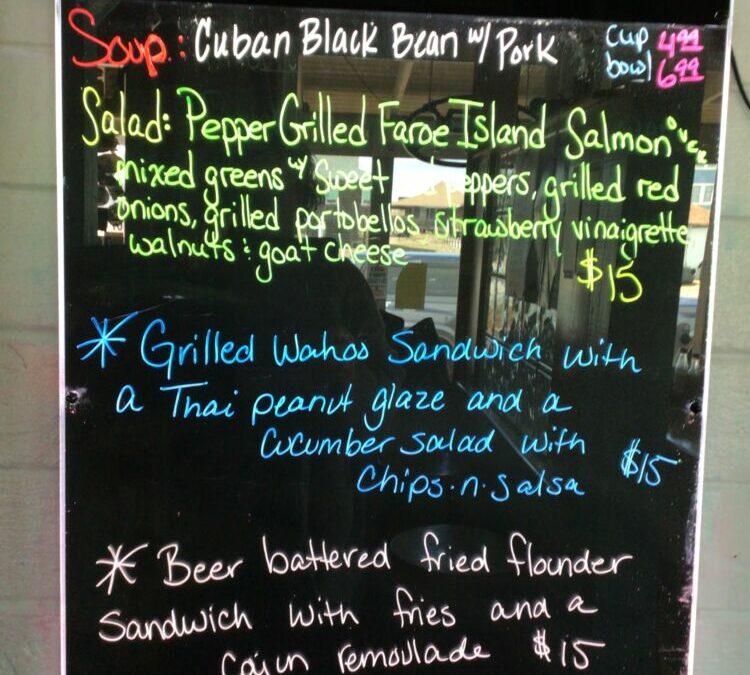 Soup: Cuban Black Bean w/ Pork
cup 4.99
bowl 6.99
Salad: Pepper Grilled Faroe Island Salmon over
mixed greens w/ Sweet red peppers, grilled red
onions, grilled portobellos strawberry vinaigrette
walnuts : goat cheese
$15
* Grilled Wahoo Sandwich with
a Thai peanut glaze and a
cucumber salad with
chips.n.salsa
$15
* Beer battered fried flounder
Sandwich with fries and a
Cajun remoulade $15